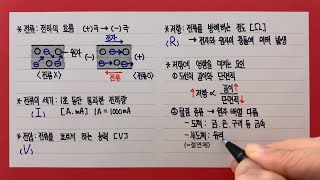 * 전류: 전하의 흐름 (+)극 → (-)극
전자
원자
<전류X> 전류 <전류O>
* 전류의 세기: 1초 동안 통과한 전하량
(I) [A, mA] 1A = 1000mA
* 전압: 전류를 흐르게 하는 능력 [V]
(V)
* 저항: 전류를 방해하는 정도 [Ω]
(R) → 전자와 원자의 충돌에 의해 발생
* 저항에 영향을 미치는 요인
① 도선의 길이와 단면적
↑저항 ∝ 길이↑
단면적↓
② 물질 종류 → 원자 배열 다름
- 도체: 금, 은, 구리 등 금속
- 부도체: 유리
(=절연체)